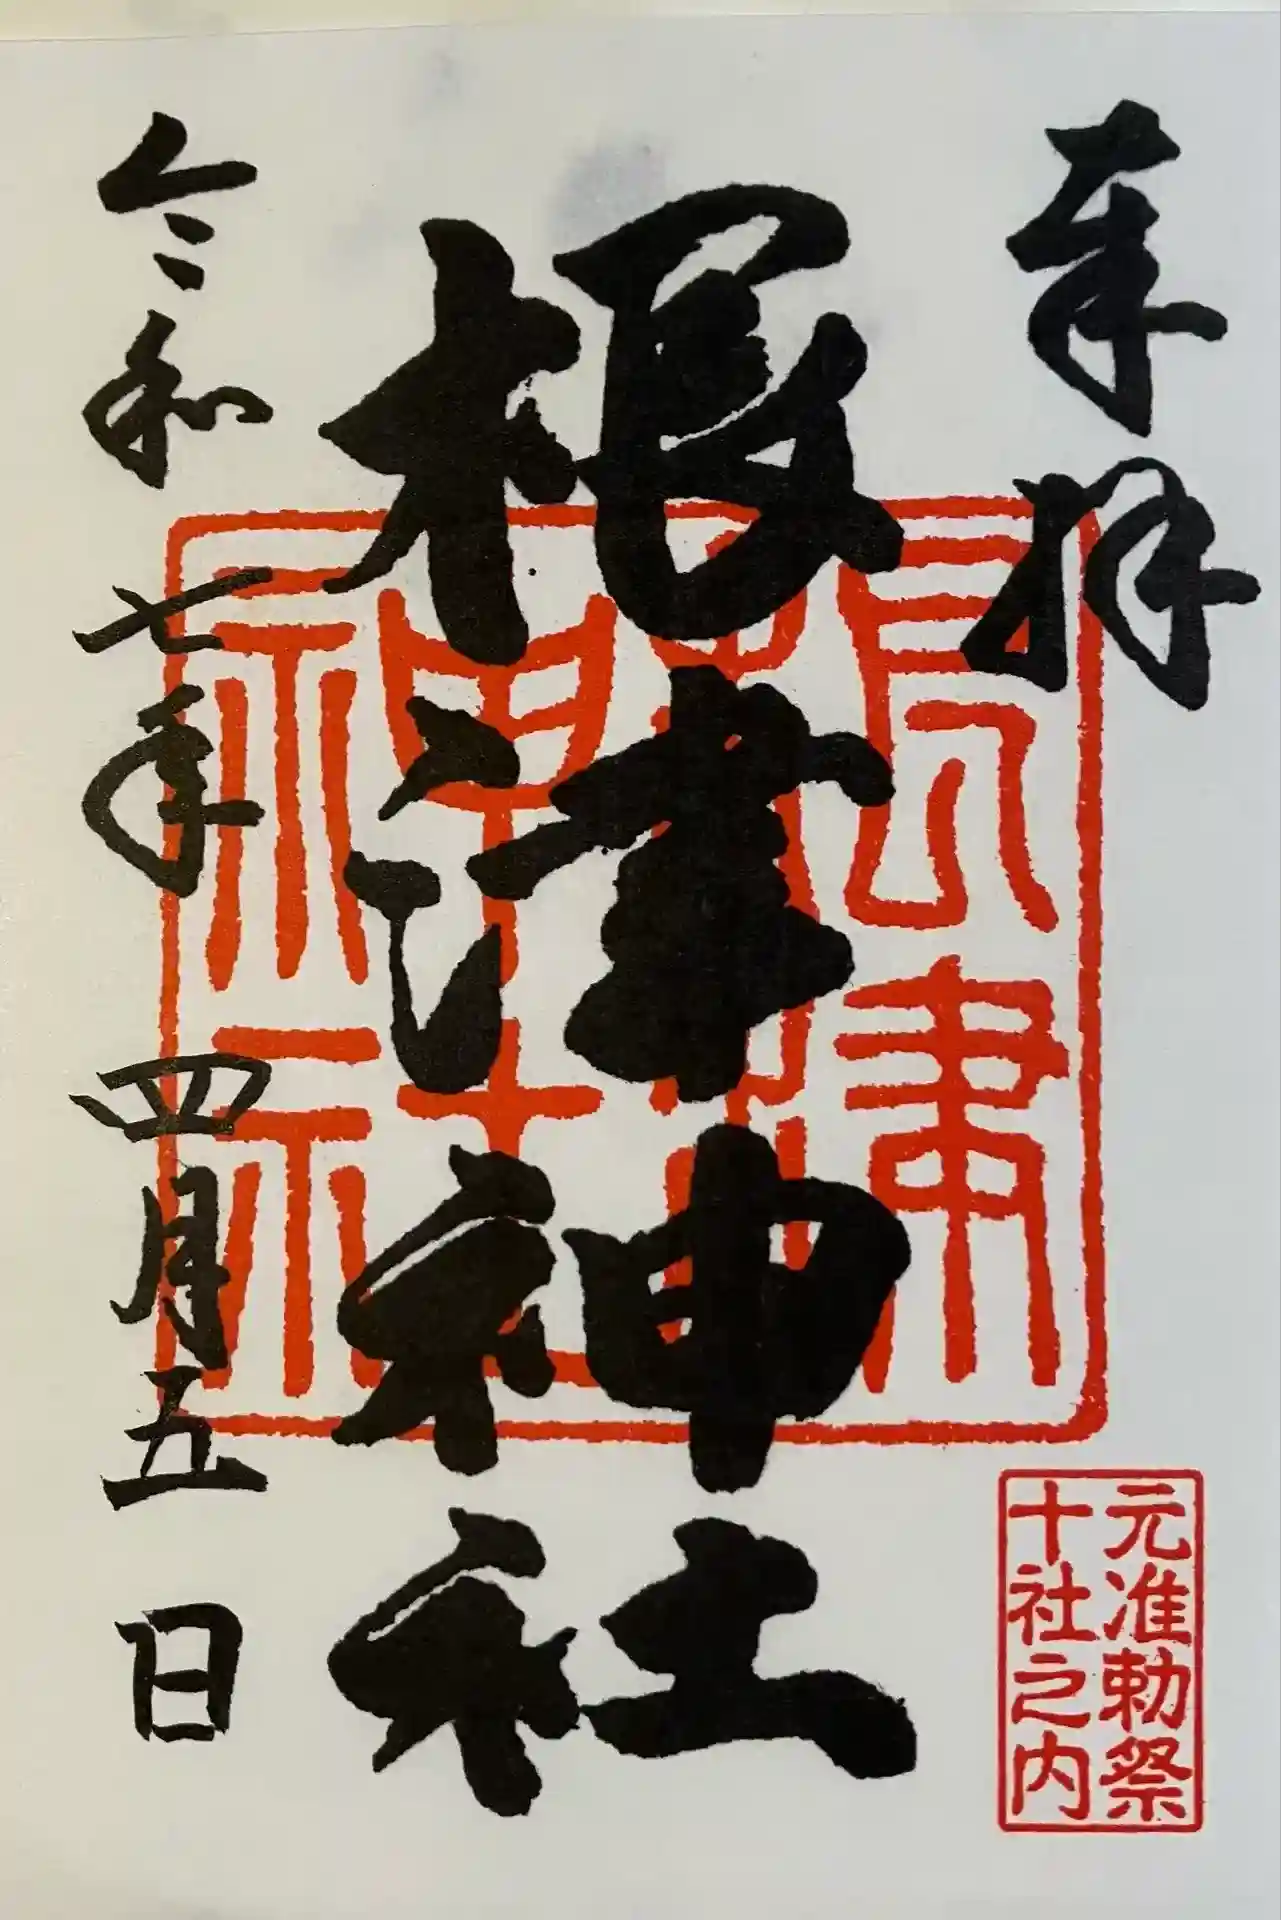 奉拝
根津神社
令和七年四月五日
根津神社
元准勅祭
十社之内